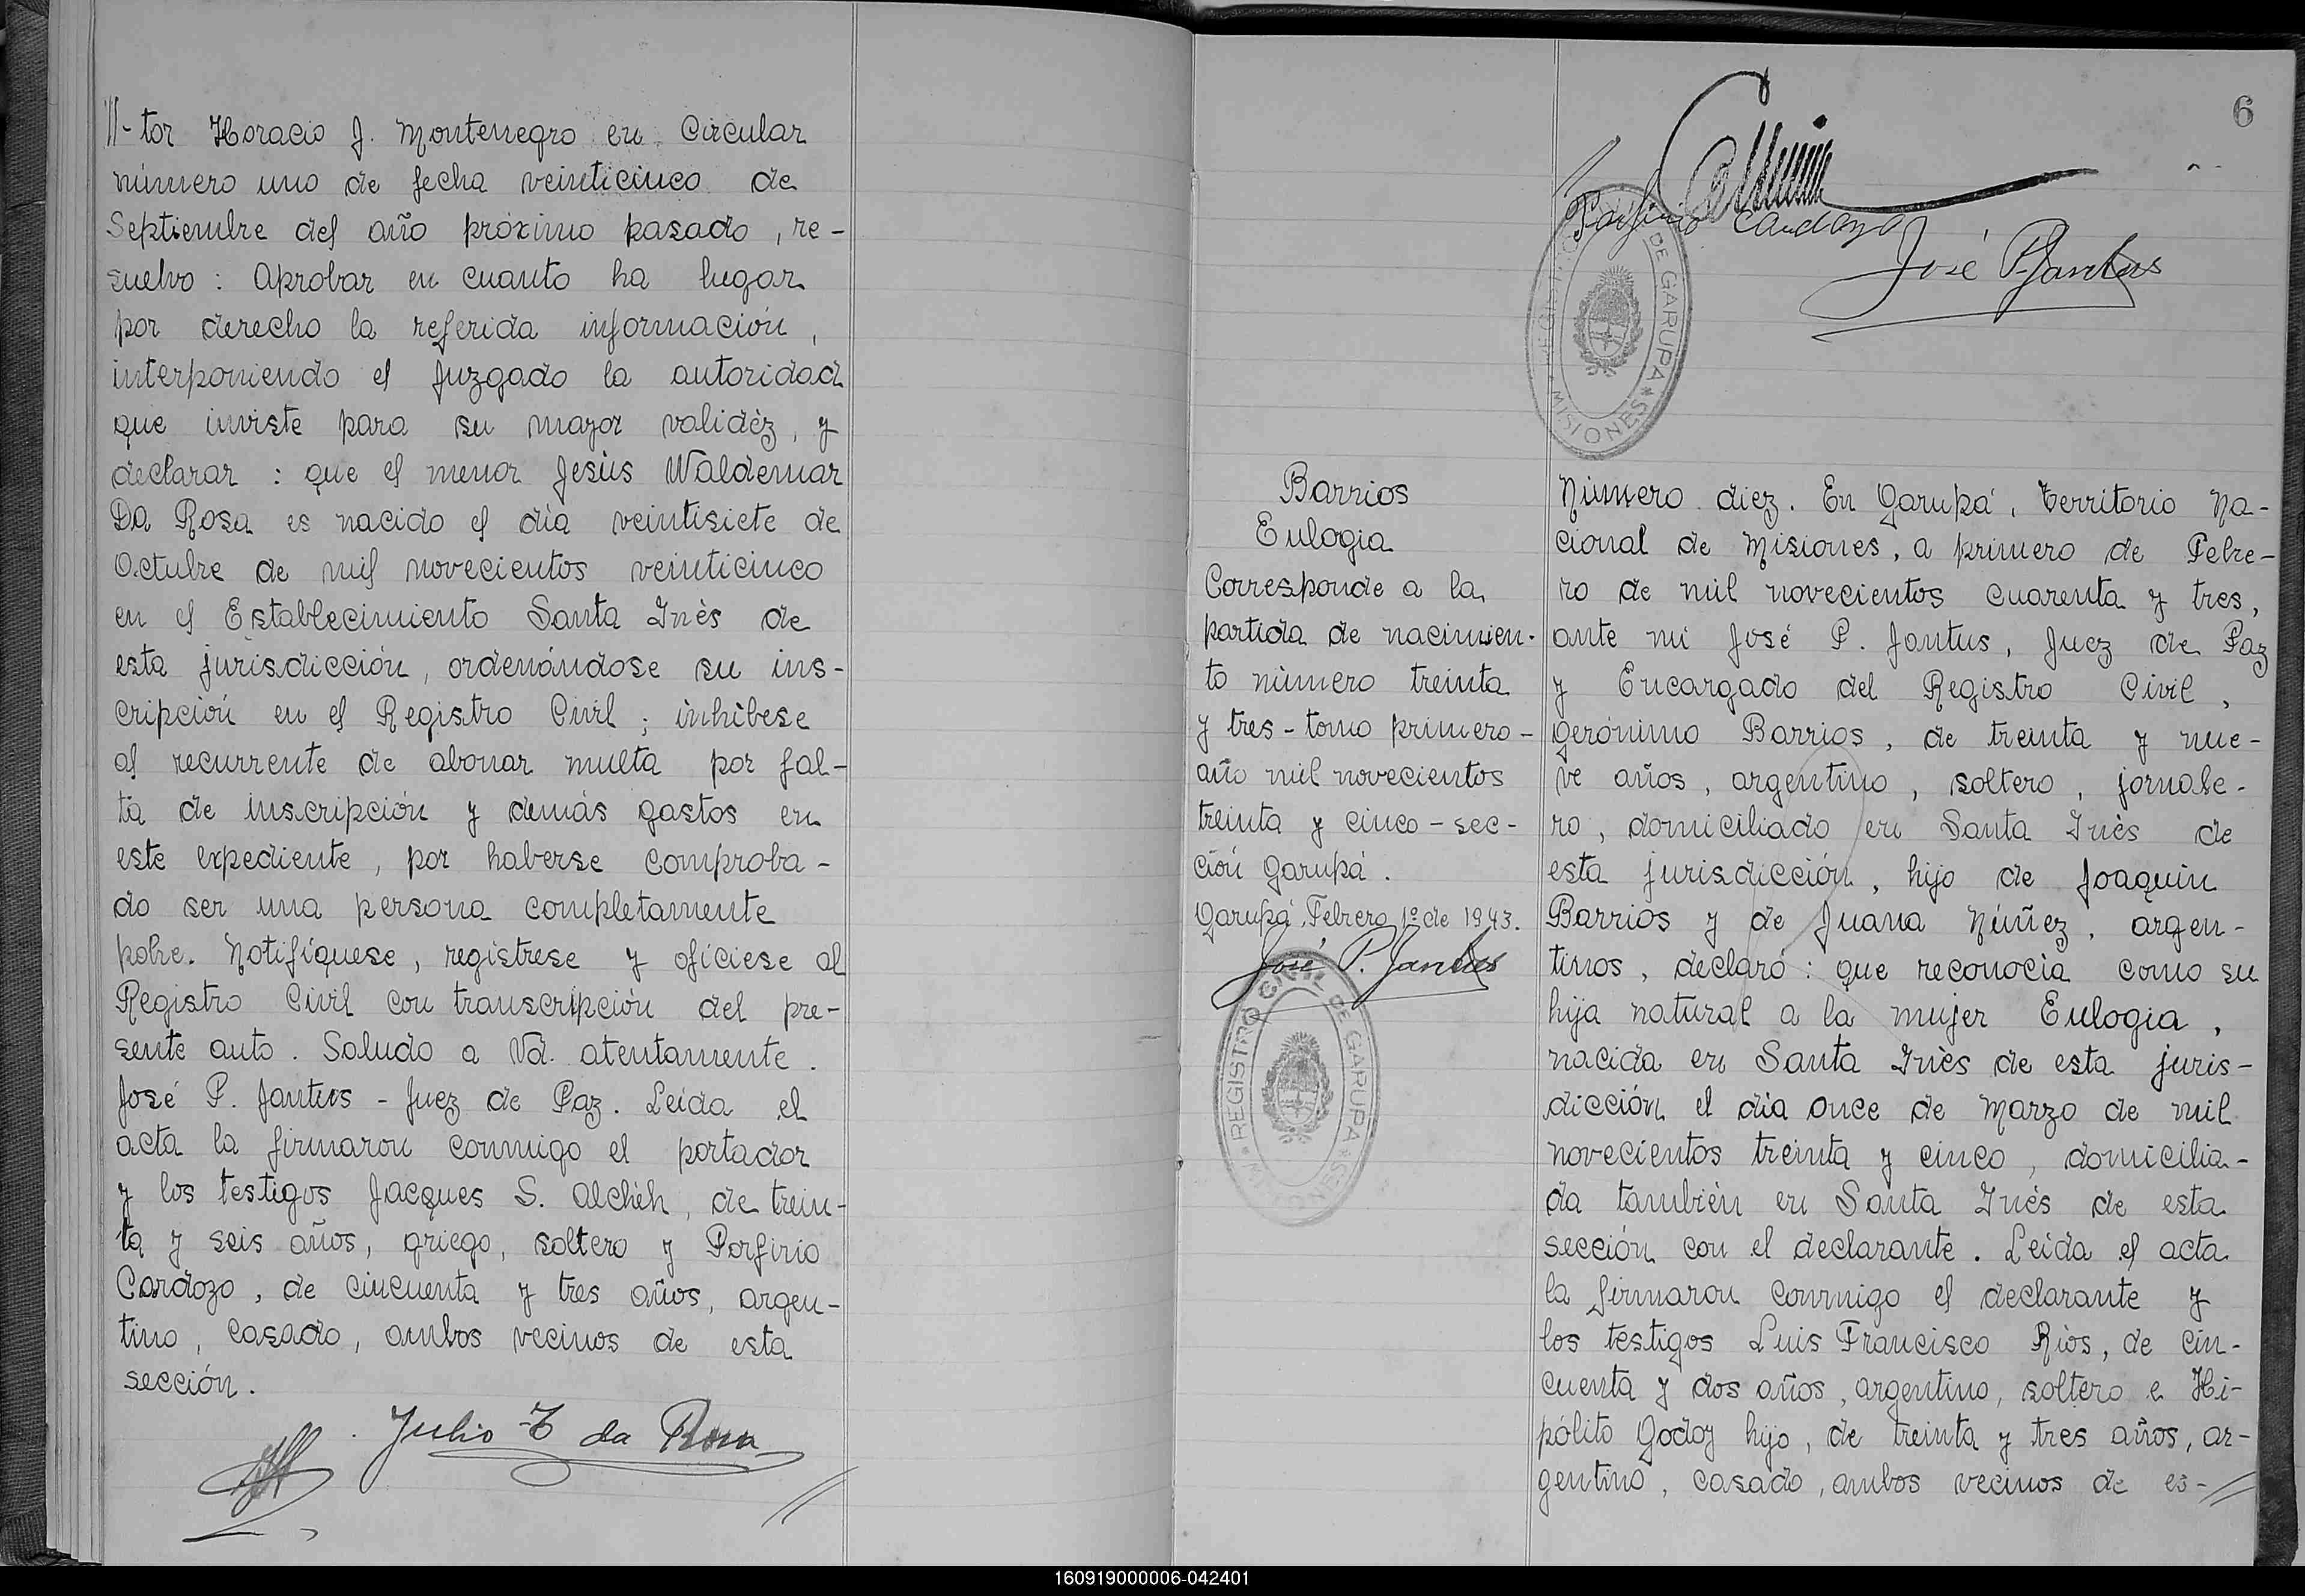 //-tor Horacio J. Montenegro en Circular
número uno de fecha veinticinco de
Septiembre del año próximo pasado, re-
suelvo: Aprobar en cuanto ha lugar
por derecho la referida información,
interponiendo el Juzgado la autoridad
que inviste para su mayor validèz, y
declarar: que el menor Jesús Waldemar
Da Rosa es nacido el dìa veintisiete de
Octubre de mil novecientos veinticinco
en el Establecimiento Santa Inès de
esta jurisdicción, ordenándose su ins-
cripción en el Registro Civil; inhíbese
al recurrente de abonar multa por fal-
ta de inscripción y demás gastos en
este expediente, por haberse comproba-
do ser una persona completamente
pobre. Notifíquese, regístrese y ofíciese al
Registro Civil con transcripción del pre-
sente auto. Saludo a Vd. atentamente.
José P. Jantus - Juez de Paz. Leida el
acta la firmaron conmigo el portador
y los testigos Jacques S. Alchèh, de trein-
ta y seis años, griego, soltero y Porfirio
Cardozo, de cincuenta y tres años, argen-
tino, casado, ambos vecinos de esta
sección.
Julio T da Rosa
//
6
//
Porfirio Cardozo
José P. Jantus
DE GARUPA * MISIONES
Barrios
Eulogia
Corresponde a la
partida de nacimien-
to nùmero treinta
y tres - tomo primero -
año mil novecientos
treinta y cinco - sec-
ción Garupá.
Garupá, Febrero 1º de 1943.
José P. Jantus
REGISTRO CIVIL DE GARUPA * MISIONES *
Nùmero diez. En Garupá, Territorio Na-
cional de Misiones, a primero de Febre-
ro de mil novecientos cuarenta y tres,
ante mi José P. Jantus, Juez de Paz
y Encargado del Registro Civil,
Gerónimo Barrios, de treinta y nue-
ve años, argentino, soltero, jornale-
ro, domiciliado en Santa Inès de
esta jurisdicción, hijo de Joaquin
Barrios y de Juana Núñez, argen-
tinos, declaró: que reconocìa como su
hija natural a la mujer Eulogia,
nacida en Santa Inès de esta juris-
dicción el dìa once de Marzo de mil
novecientos treinta y cinco, domicilia-
da tambièn en Santa Inès de esta
sección con el declarante. Leida el acta
la firmaron conmigo el declarante y
los testigos Luis Francisco Rìos, de cin-
cuenta y dos años, argentino, soltero e Hi-
pólito Godoy hijo, de treinta y tres años, ar-
gentino, casado, ambos vecinos de es-//
160919000006-042401